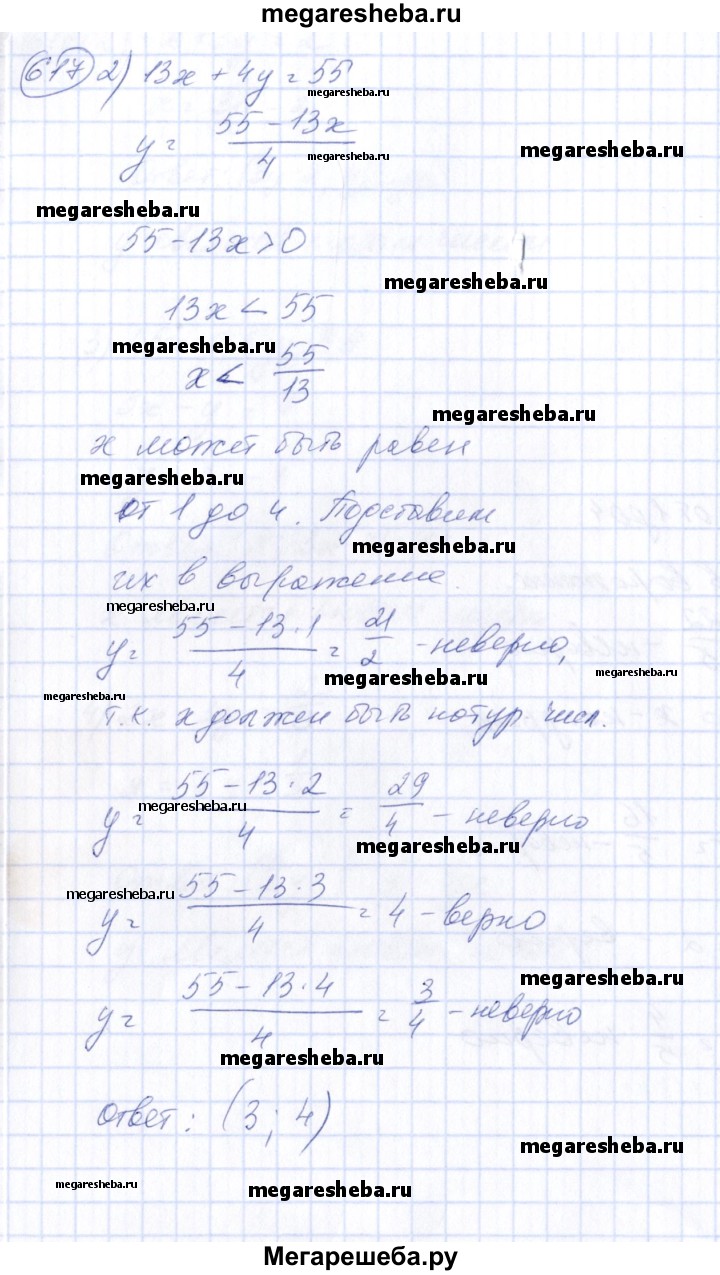 megaresheba.ru
617 2) 13x + 4y = 55
megaresheba.ru
y = (55 - 13x)/4
megaresheba.ru
megaresheba.ru
megaresheba.ru
55 - 13x > 0
megaresheba.ru
13x < 55
megaresheba.ru
x < 55/13
megaresheba.ru
x может быть равен
megaresheba.ru
от 1 до 4. Подставим
megaresheba.ru
их в выражение.
megaresheba.ru
y = (55 - 13·1)/4 = 21/2 - неверно,
megaresheba.ru
megaresheba.ru
megaresheba.ru
т.к. x должен быть натур. числ.
y = (55 - 13·2)/4 = 29/4 - неверно
megaresheba.ru
megaresheba.ru
megaresheba.ru
y = (55 - 13·3)/4 = 4 - верно
megaresheba.ru
y = (55 - 13·4)/4 = 3/4 - неверно
megaresheba.ru
Ответ: (3; 4)
megaresheba.ru
megaresheba.ru
megaresheba.ru
Мегарешеба.ру